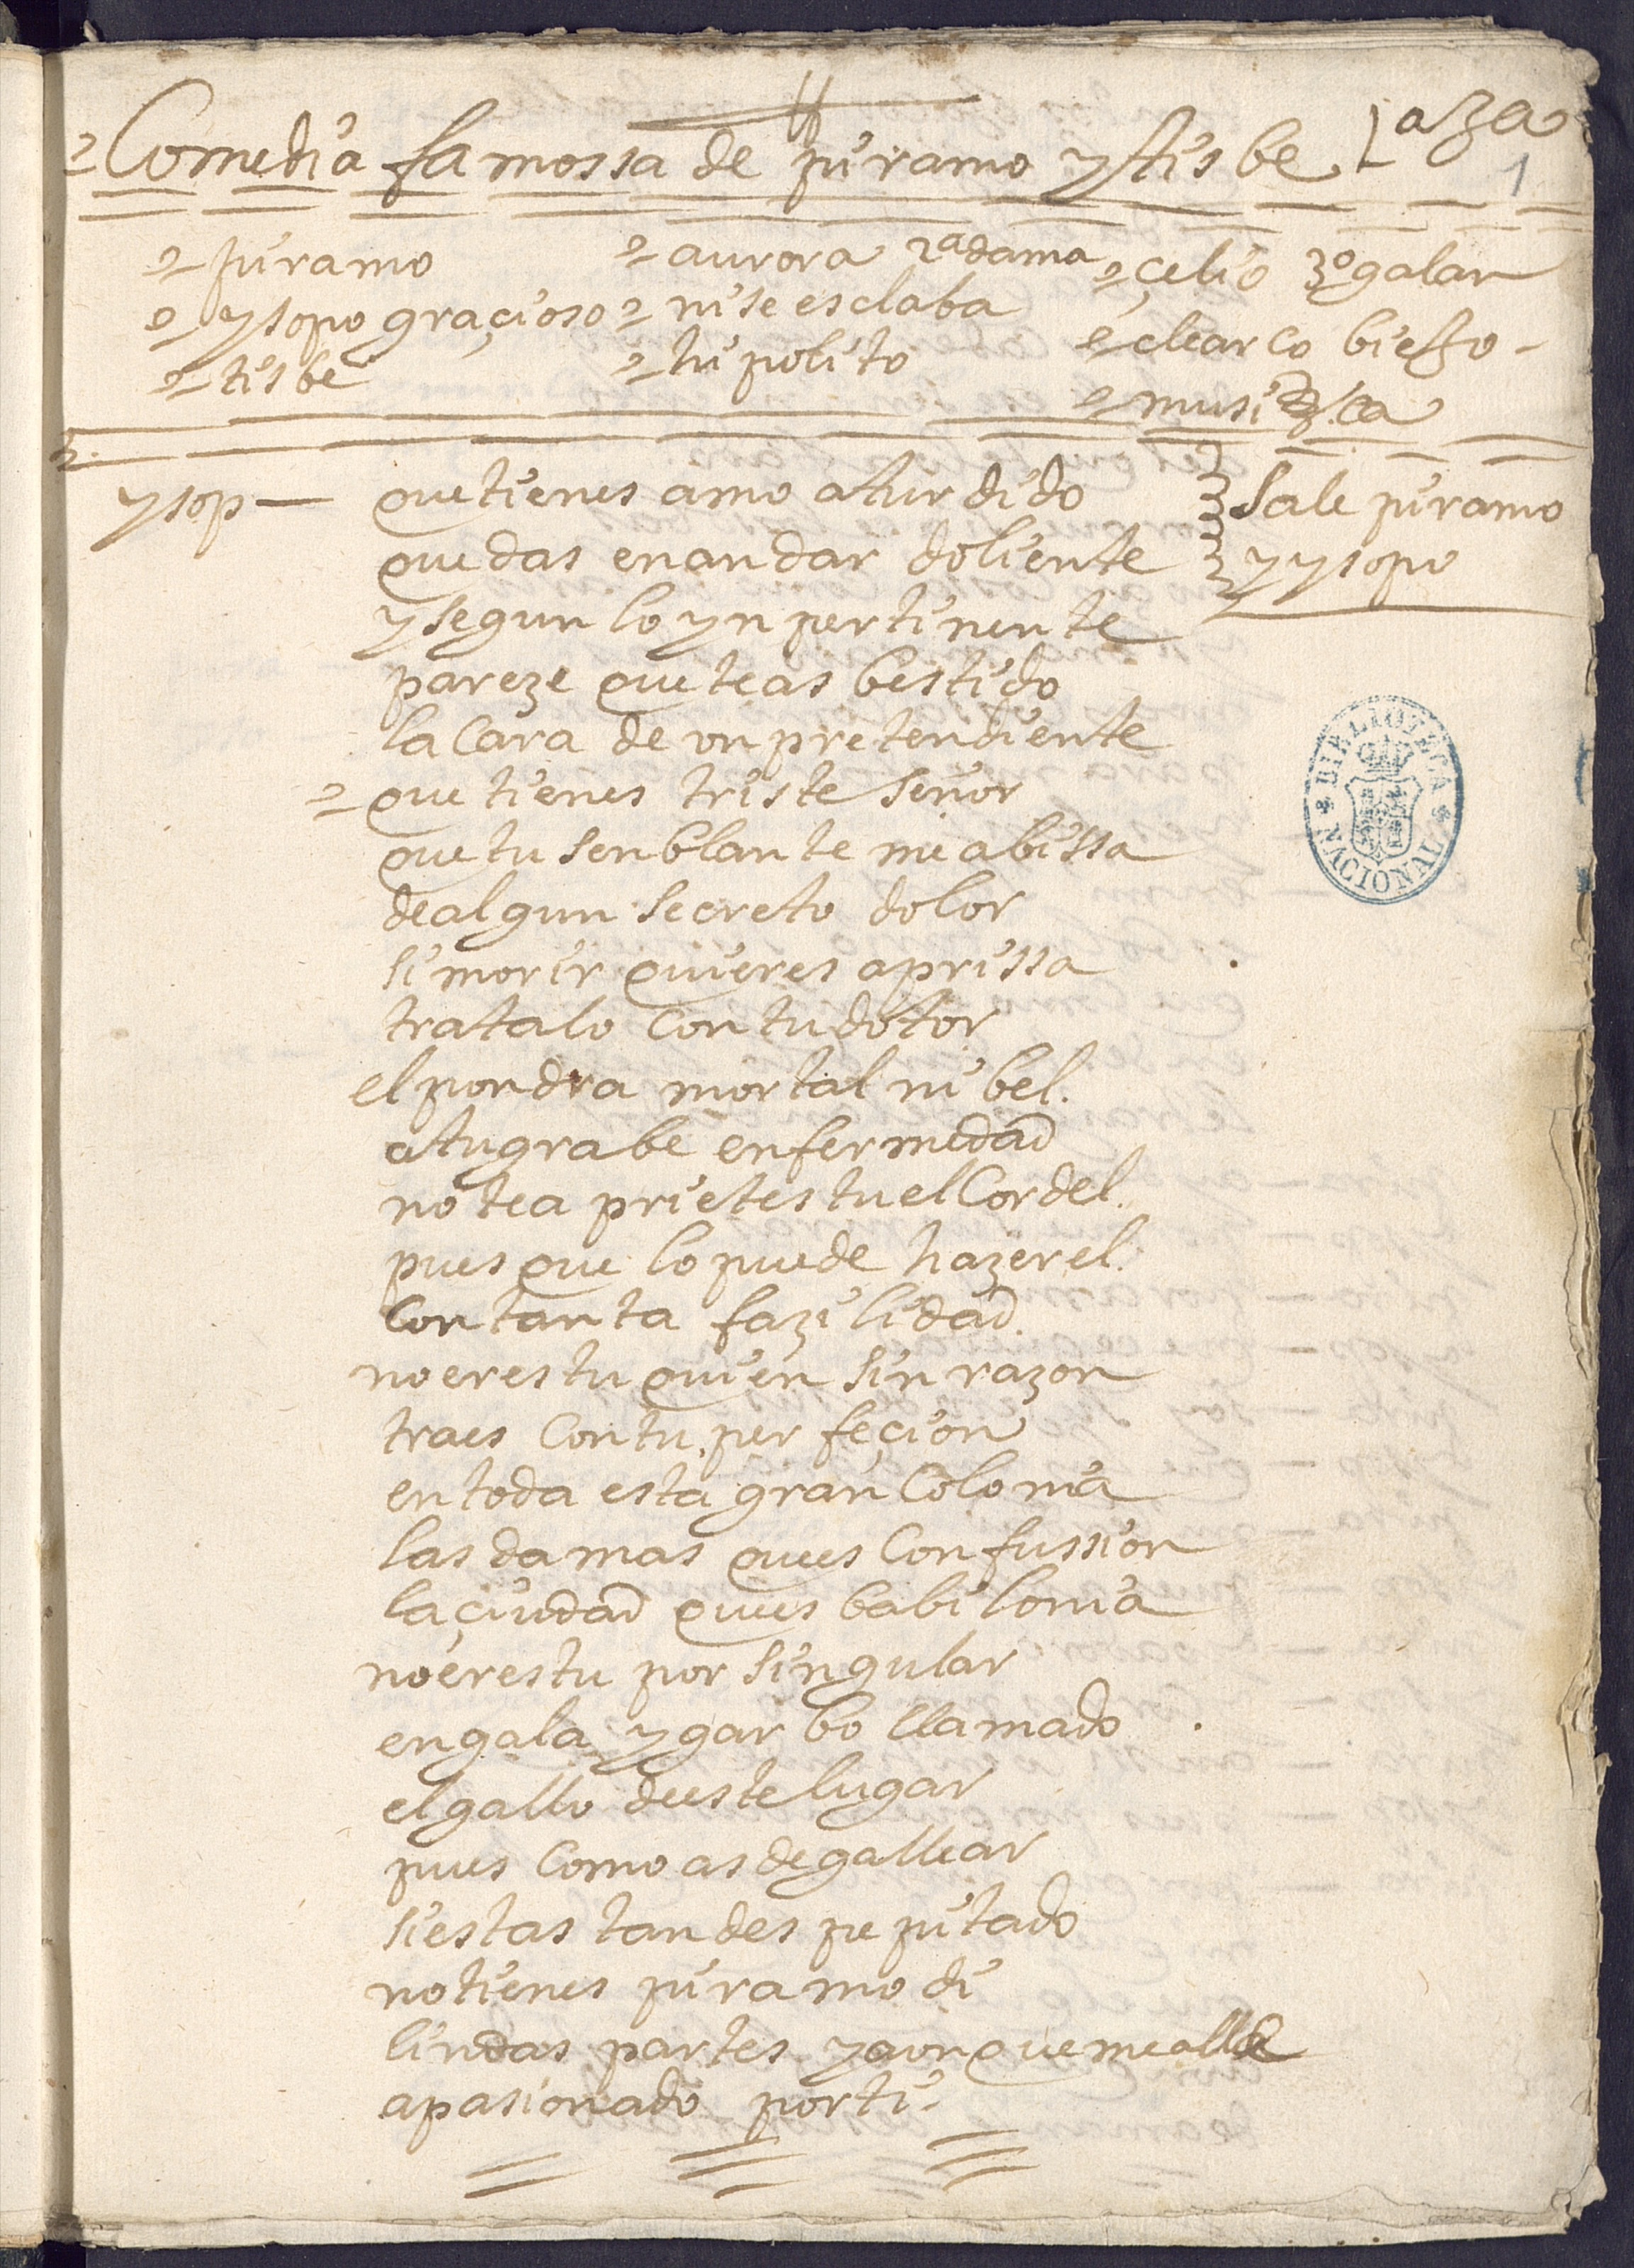 Comedia famossa de piramo y tisbe Laza
1
piramo
aurora 2ª dama
çelio 3º galan
ysopo graçioso
nise esclaba
clearco biejo
tisbe
hipolito
musica
ysop— que tienes amo aturdido
Sale piramo
que das en andar doliente
y ysopo
y segun lo ynpertinente
pareze que teas bestido
la Cara de un pretendiente
que tienes triste señor
que tu senblante me abissa
de algun secreto dolor
si morir quieres aprissa
tratalo con tu dotor
el pondra mortal nibel.
a tu grabe enfermedad
no tea prietes tu el Cordel.
pues que lo puede hazer el.
Con tanta fazilidad.
no eres tu quien sin razon
traes Con tu perfeçion
en toda esta gran Colonia
las damas ques Confussion
la çiudad ques babilonia
no eres tu por singular
en gala y garbo llamado
el gallo deeste lugar
pues Como as de gallear
si estas tan despepitado
no tienes piramo di
lindas partes y aunque me alle
apasionado por ti
BIBLIOTECA NACIONAL